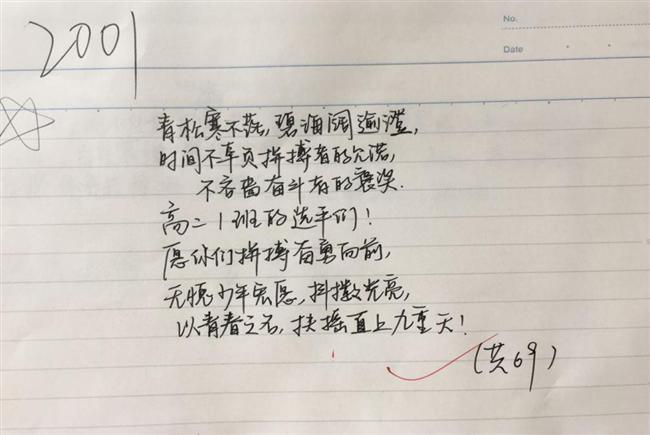 No.
Date
2001
青松寒不落,碧海阔逾澄,
时间不辜负拼搏者的允诺,
不吝啬奋斗者的褒奖.
高二1班的选手们!
愿你们拼搏奋勇向前,
无愧少年宏愿,抖擞光亮,
以青春之名,扶摇直上九重天!
(共69)